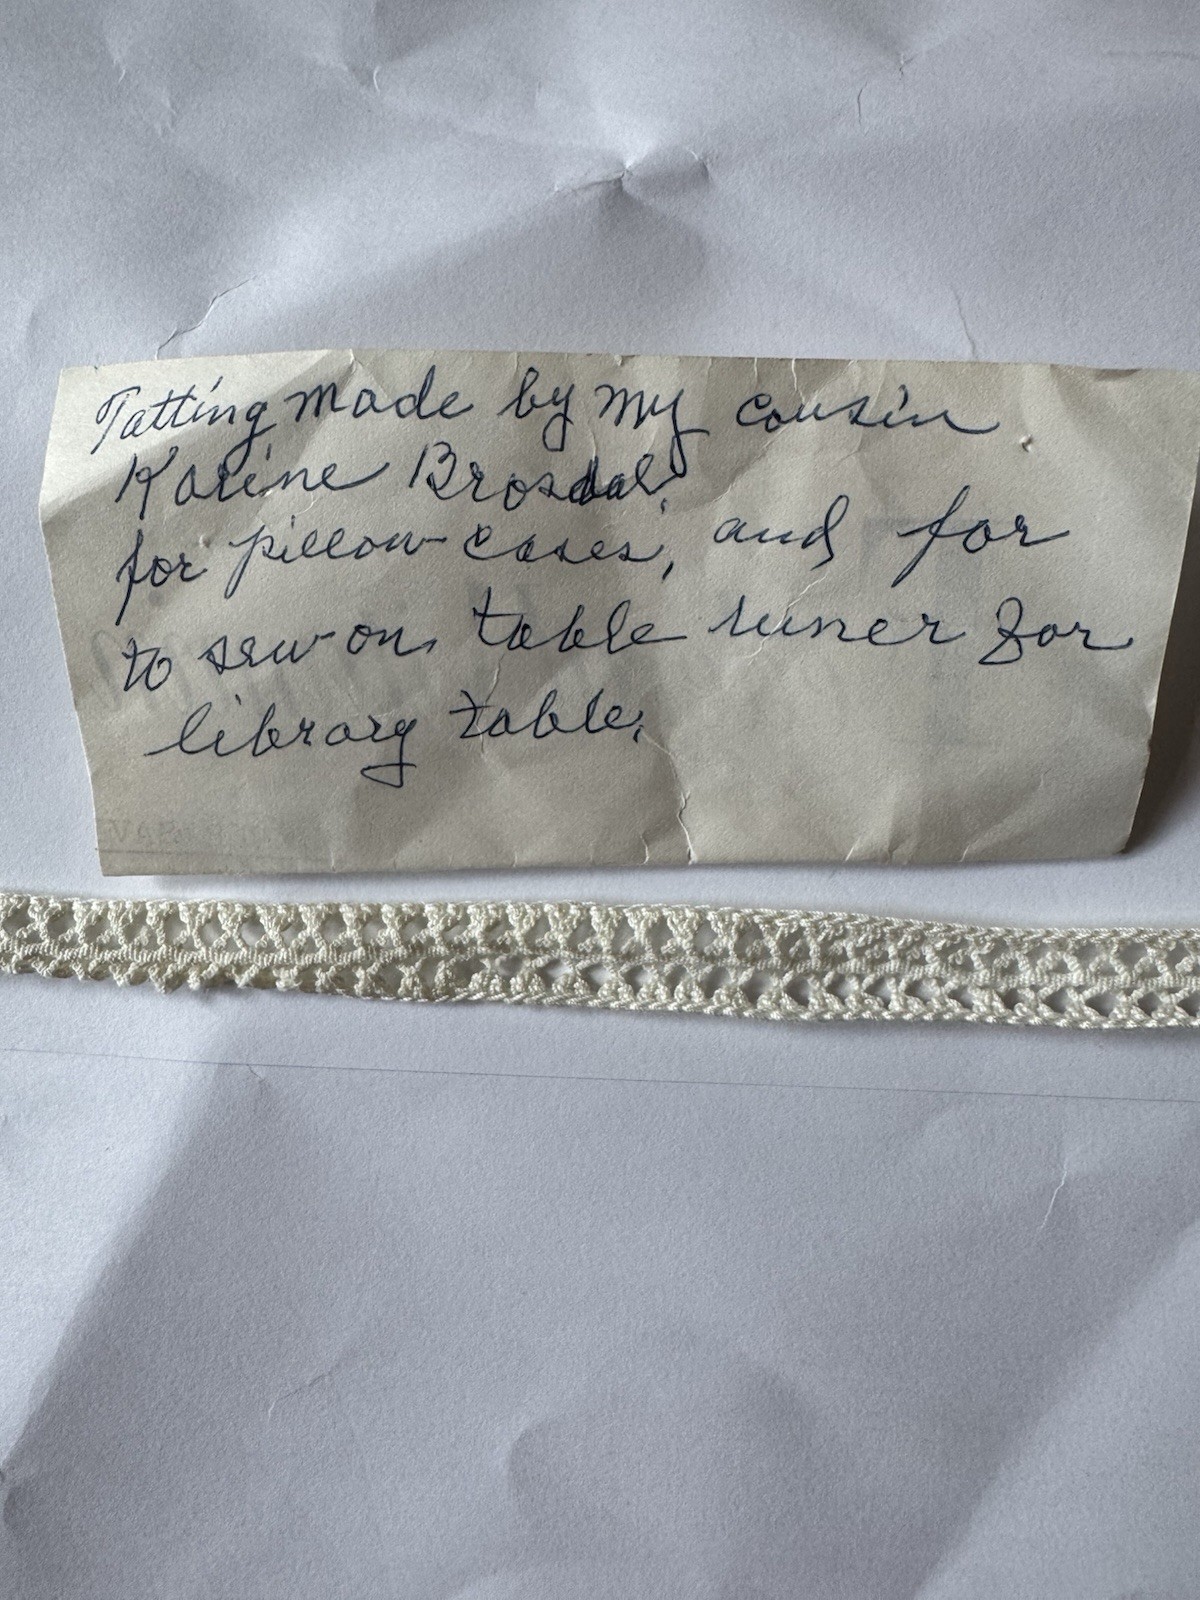 Tatting made by my cousin
Karine Brosdal,
for pillow-cases, and for
to sew on, table runer for
library table.